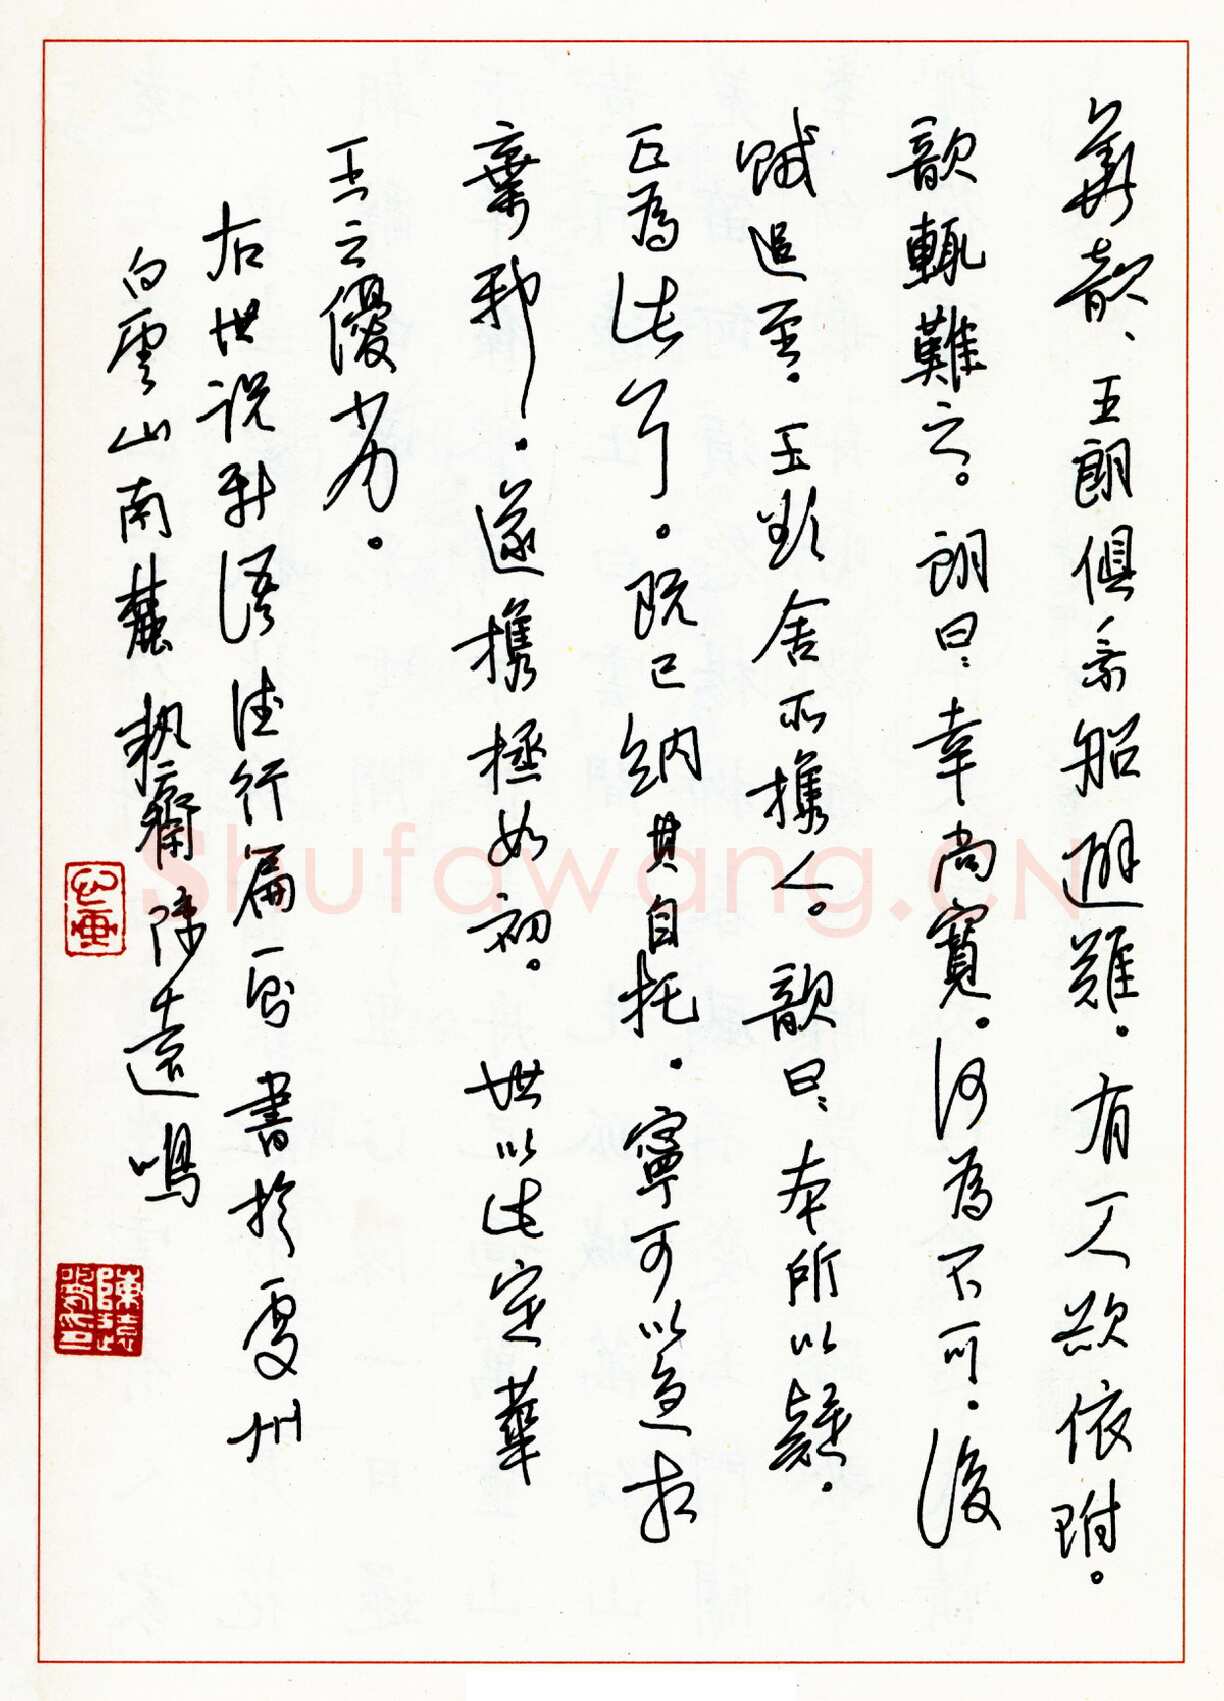 華歆、王朗俱乘船避難。有人欲依附。
歆輒難之。朗曰:幸尚寬。何為不可。後
賊追至。王欲舍所攜人。歆曰:本所以疑。
正為此耳。既已納其自托。寧可以急相
棄邪。遂攜拯如初。世以此定華
王之優劣。
右世說新語德行篇一則書於處州
白雲山南麓執齋陳遠鳴
心畫
Shufawang.CN